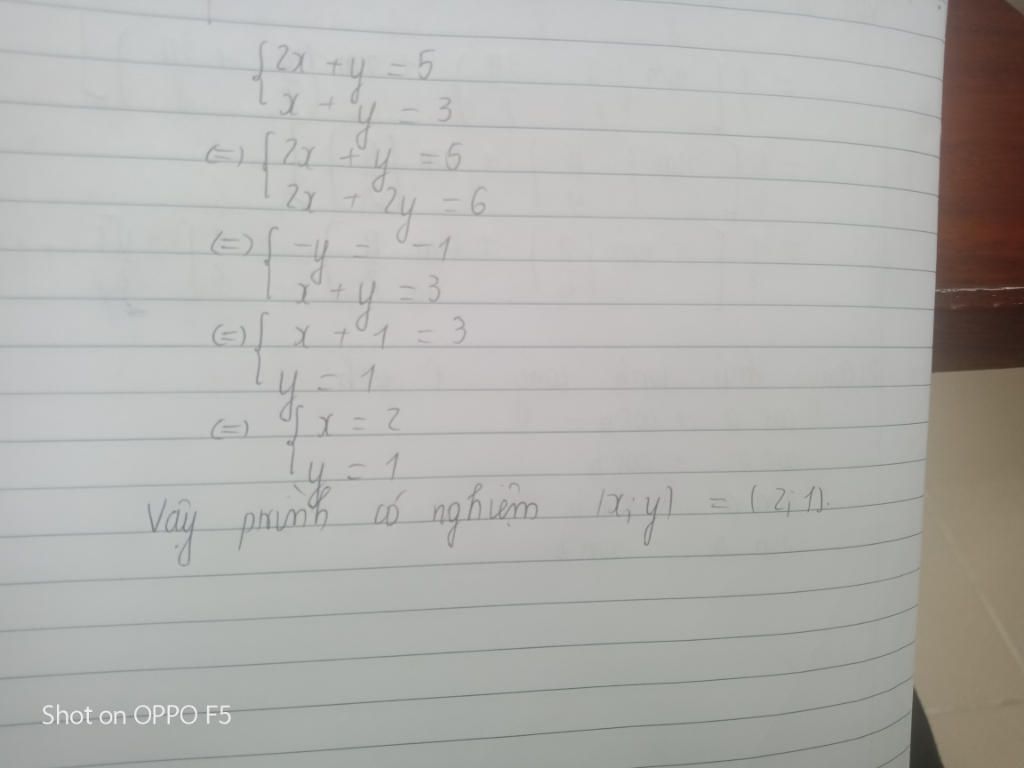 {2x + y = 5
x + y = 3
(=) {2x + y = 5
2x + 2y = 6
(=) {-y = -1
x + y = 3
(=) { x + 1 = 3
y = 1
(=) { x = 2
y = 1
Vậy ptrình có nghiệm (x;y) = (2;1).
Shot on OPPO F5